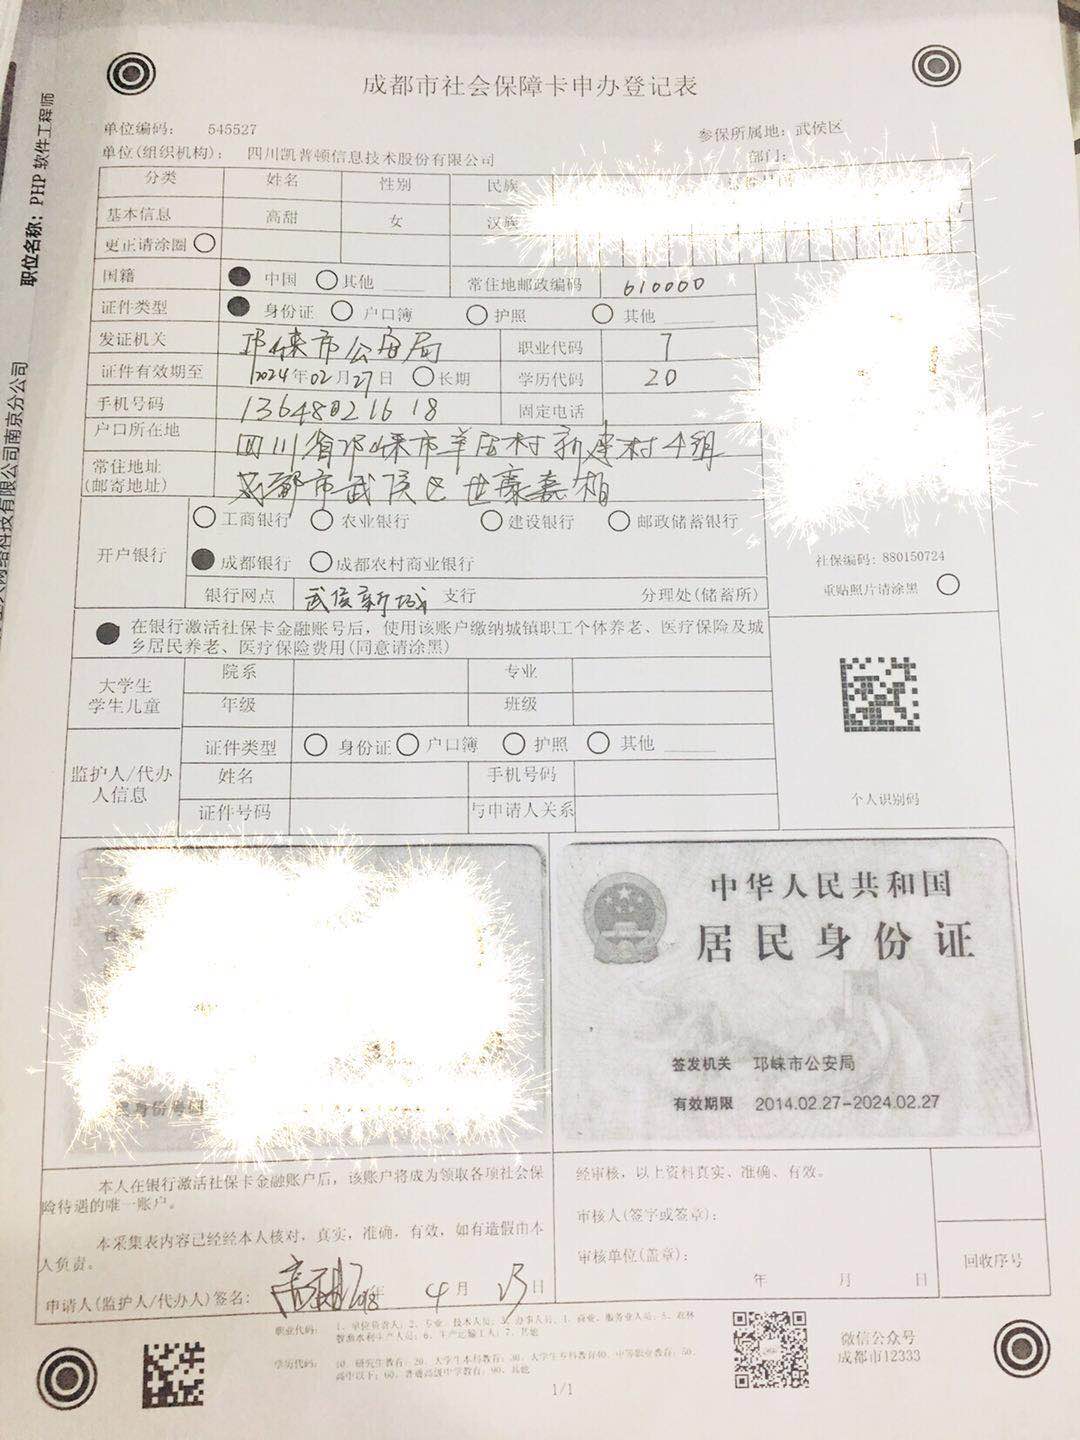 成都市社会保障卡申办登记表
单位编码： 545527
参保所属地：武侯区
单位(组织机构)： 四川凯普顿信息技术股份有限公司
部门：
分类 姓名 性别 民族
基本信息 高甜 女 汉族
更正请涂圈
国籍 中国 其他 常住地邮政编码 610000
证件类型 身份证 户口簿 护照 其他
发证机关 邛崃市公安局 职业代码 7
证件有效期至 2024年02月27日 长期 学历代码 20
手机号码 13648021618 固定电话
户口所在地 四川省邛崃市羊居村新建村4组
常住地址 成都市武侯区世豪嘉柏
(邮寄地址)
开户银行 工商银行 农业银行 建设银行 邮政储蓄银行
成都银行 成都农村商业银行
银行网点 武侯新城 支行 分理处(储蓄所)
社保编码：880150724
重贴照片请涂黑
在银行激活社保卡金融账号后，使用该账户缴纳城镇职工个体养老、医疗保险及城
乡居民养老、医疗保险费用(同意请涂黑)
大学生 院系 专业
学生儿童 年级 班级
监护人/代办 证件类型 身份证 户口簿 护照 其他
人信息 姓名 手机号码
证件号码 与申请人关系
个人识别码
中华人民共和国
居民身份证
签发机关 邛崃市公安局
有效期限 2014.02.27-2024.02.27
身份号
本人在银行激活社保卡金融账户后，该账户将成为领取各项社会保
险待遇的唯一账户。
本采集表内容已经经本人核对，真实，准确，有效，如有造假由本
人负责。
申请人(监护人/代办人)签名： 高甜 2018年 4月 13日
经审核，以上资料真实、准确、有效。
审核人(签字或签章)：
审核单位(盖章)：
年 月 日
回收序号
职业代码： 1、单位负责人；2、专业、技术人员；3、办事人员、1、商业、服务业人员；5、农林
牧渔水利生产人员；6、生产运输工人；7、其他
学历代码： 10、研究生教育；20、大学生本科教育；30、大学生专科教育40、中等职业教育；50、
高中以下；60、普通高级中学教育；90、其他
1/1
微信公众号
成都市12333
职位名称：PHP 软件工程师
网络科技有限公司南京分公司